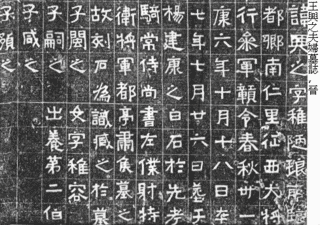 王興之夫婦墓誌,晉
諱興之字稚陋琅耶臨
都鄉南仁里征西大將
行參軍贛令春秋卅一
康六年十月十八日卒
七年七月廿六日葬于
楊建康之白石於先考
騎常侍尚書左僕射特
衛將軍都亭肅侯墓之
故刻石為識臧之於墓
子閩之 女字稚容
子嗣之 出養第二伯
子咸之
子預之